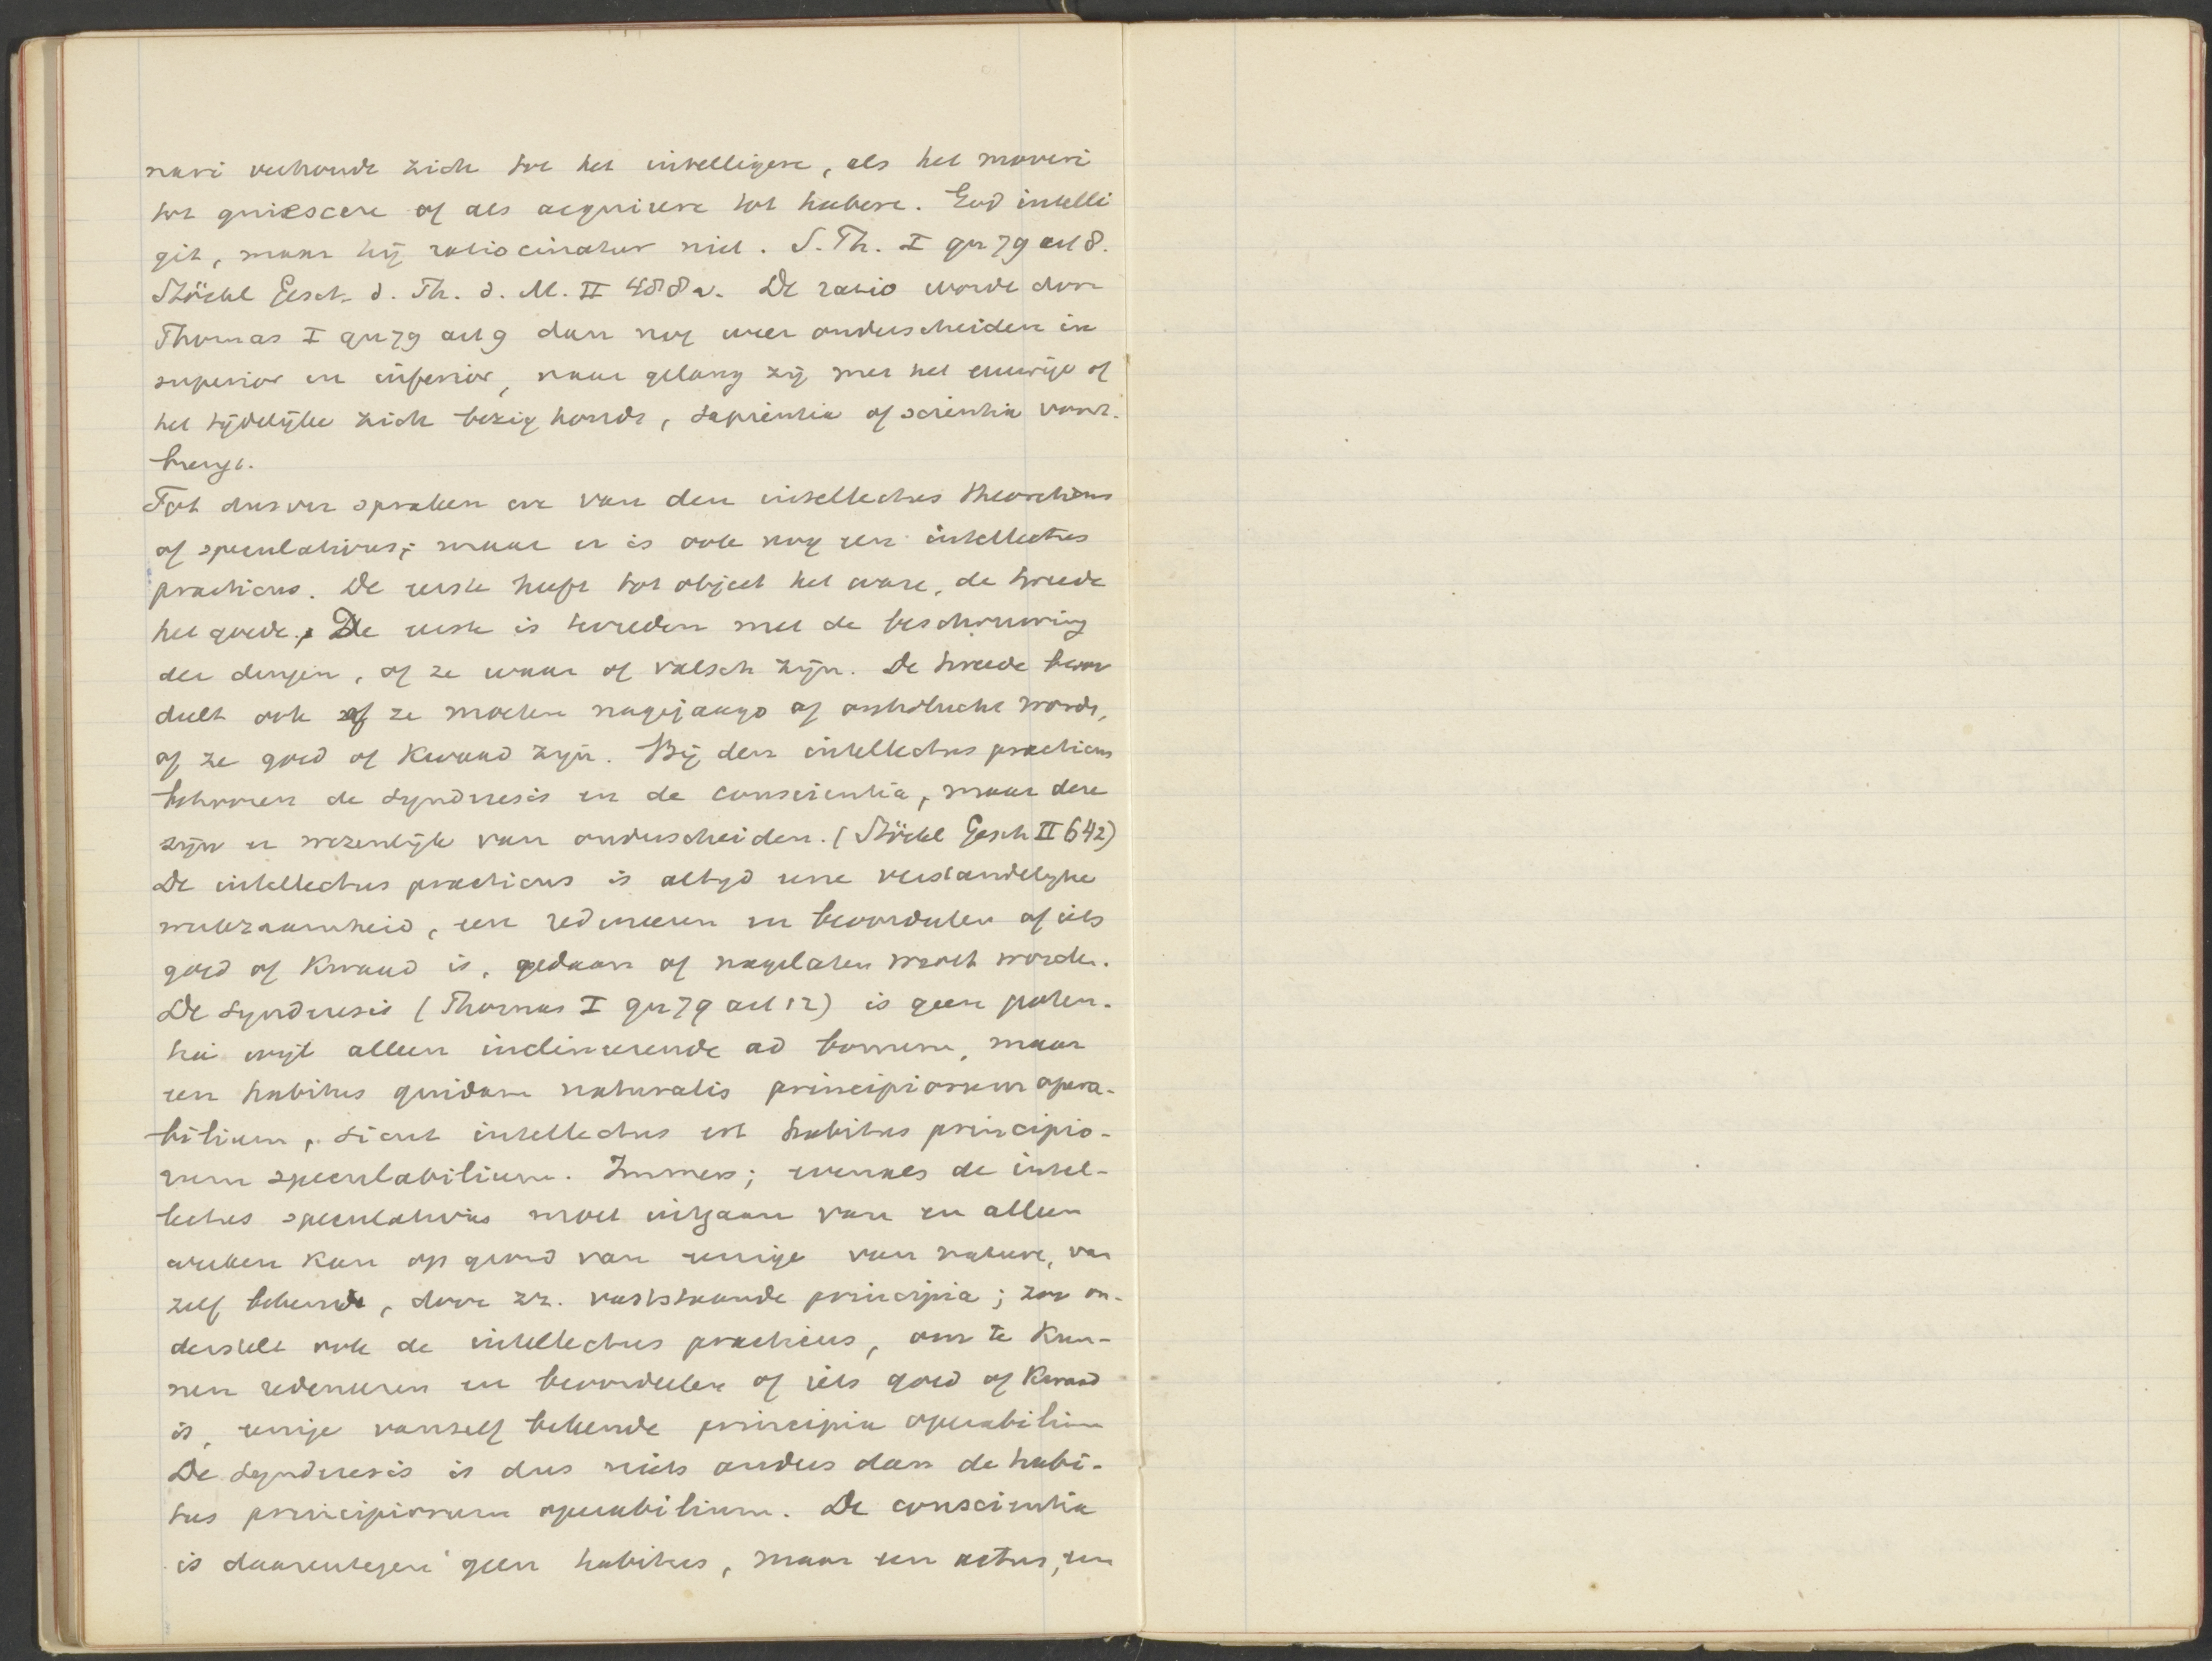 nari verhoudt zich tot het intelligere, als het moveri
tot quiescere of als acquirere tot habere. God intelli
git, maar hij ratiocinatur niet. S. Th. I qu 79 art 8.
Stöckl Gesch. d. Ph. d. M. II 488 v. De ratio wordt door
Thomas I qu 79 art 9 dan nog weer onderscheiden in
superior en inferior, naar gelang zij met het eeuwige of
het tijdelijke zich bezig houdt, sapientia of scientia voort-
brengt.
Tot dusver spraken we van den intellectus theoreticus
of speculativus; maar er is ook nog een intellectus
practicus. De eerste heeft tot object het ware, de tweede
het goede. De eerste is tevreden met de beschouwing
der dingen, of ze waar of valsch zijn. De tweede beoor
deelt ook of ze moeten nagejaagd of ontvlucht wordn,
of ze goed of kwaad zijn. Bij den intellectus practicus
behooren de synderesis en de conscientia, maar deze
zijn er wezenlijk van onderscheiden. (Stöckl Gesch II 642)
De intellectus practicus is altijd eene verstandelijke
werkzaamheid, een redeneeren en beoordeelen of iets
goed of kwaad is, gedaan of nagelaten moet worden.
De synderesis (Thomas I qu 79 art 12) is geen poten-
tia wijl alleen inclineerende ad bonum, maar
een habitus quidam naturalis principiorum opera-
bilium, sicut intellectus est habitus principio-
rum speculabilium. Immers; evenals de intel-
lectus speculativus moet uitgaan van en alleen
werken kan op grond van eenige van nature, van
zelf bekende, door zz. vaststaande principia; zoo on-
derstelt ook de intellectus practicus, om te kun-
nen redeneeren en beoordeelen of iets goed of kwaad
is, eenige vanself bekende principia operabilium
De synderesis is dus niets anders dan de habi-
tus principiorum operabilium. De conscientia
is daarentegen geen habitus, maar een actus, een